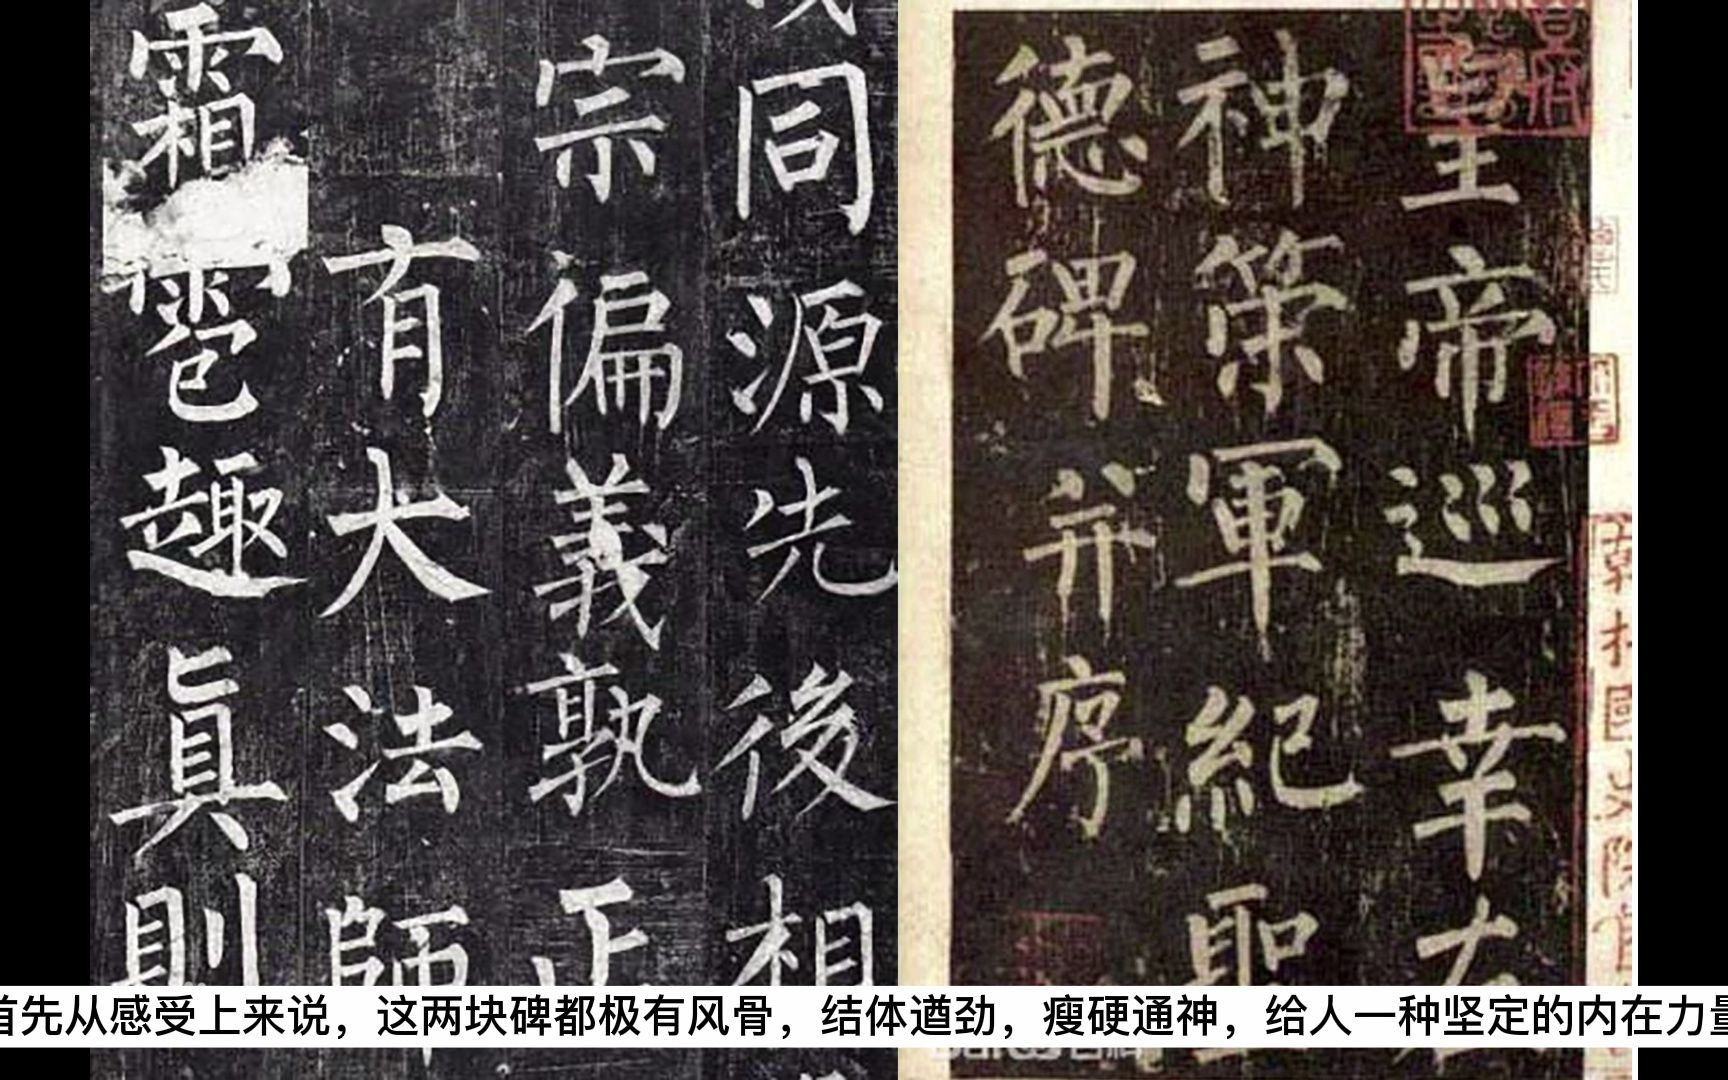 同源先後相
宗偏義孰正
有大法師
霜雹趣眞則
皇帝巡幸左
神策軍紀聖
德碑并序
首先从感受上来说，这两块碑都极有风骨，结体遒劲，瘦硬通神，给人一种坚定的内在力量